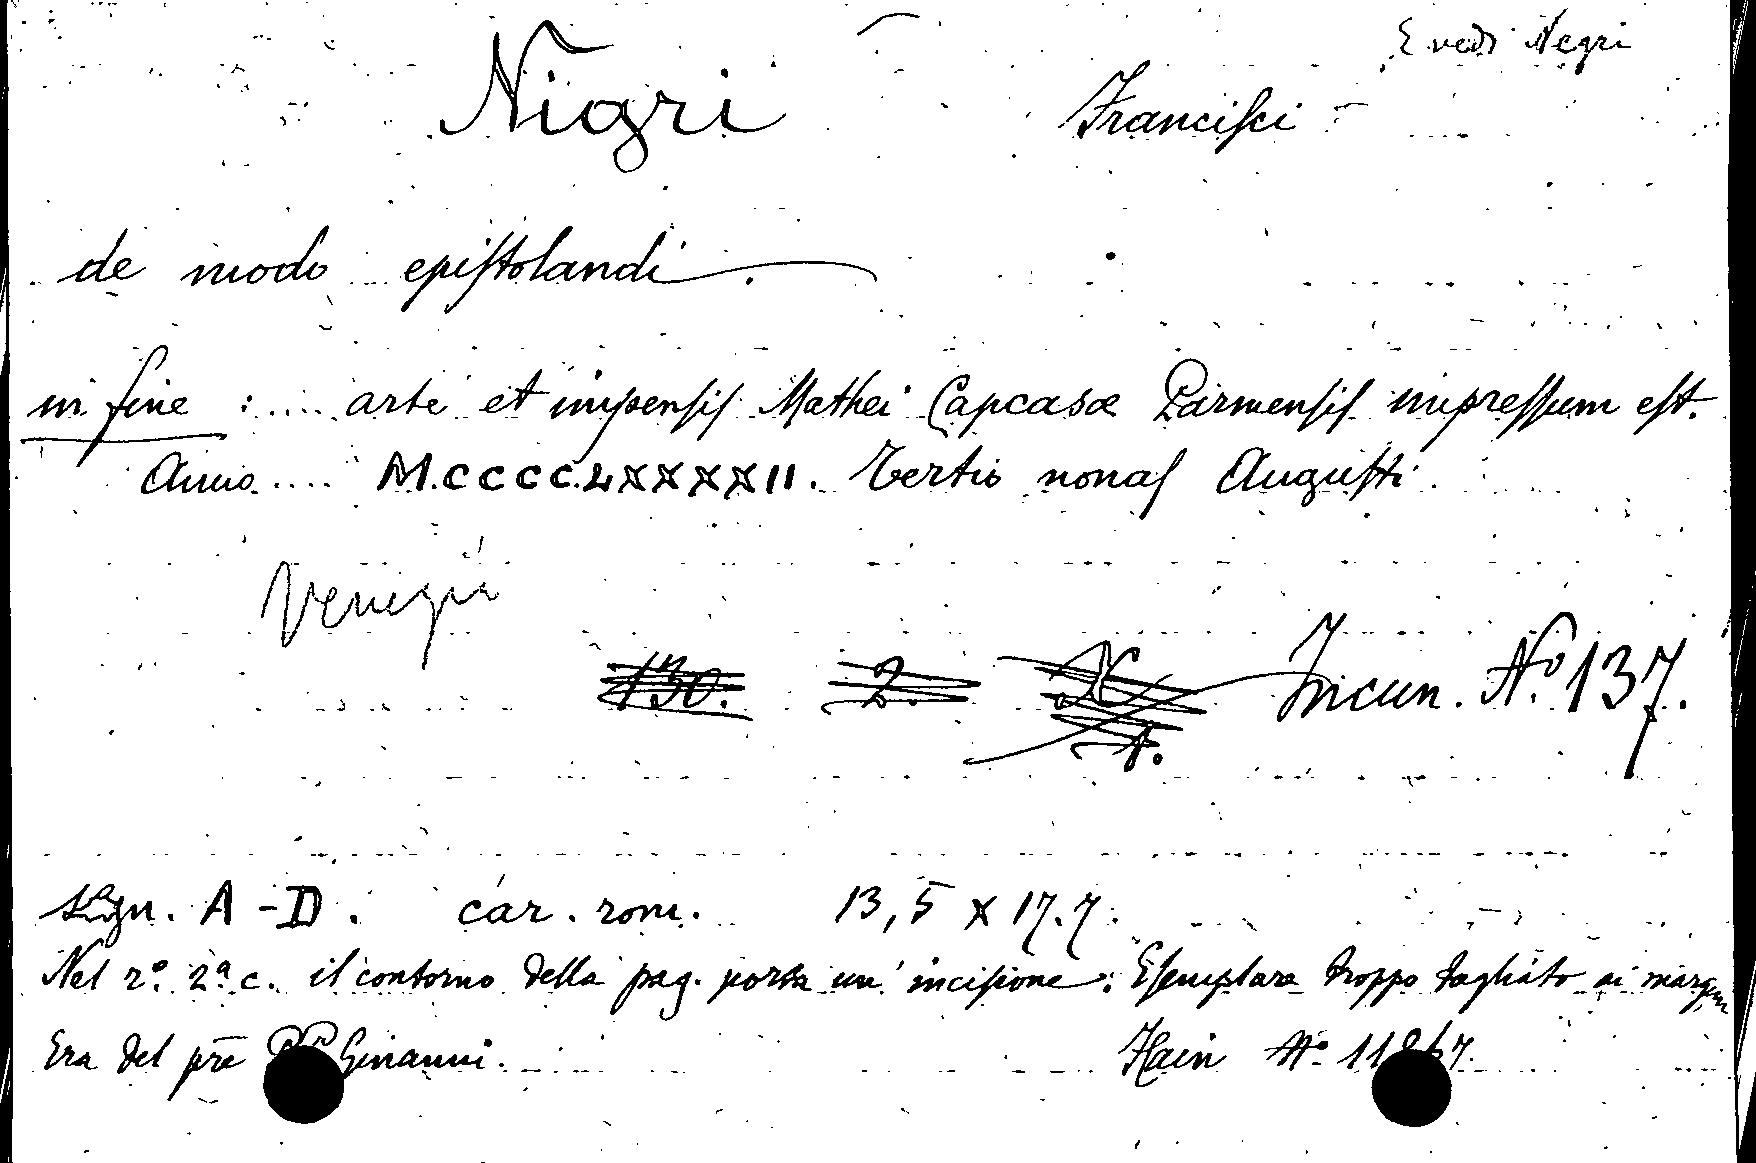 E vedi Negri
Nigri Franciſci
de modo epiſtolandi.
in fine: .... arte et impenſiſ Mathei Capcasæ Parmenſiſ impreſſum eſt.
Anno .... M.CCCC.LXXXXII. Tertio nonaſ Auguſti
Venezia
130. 2. X Incun. Nº 137.
1.
segn. A-D. car. rom. 13,5 x 17.7.
Nel rº. 2ª c. il contorno della pag. porta un' inciſione. Eſemplare troppo tagliato ai margini
Era del pre Ginanni. Hain Nº 11867.